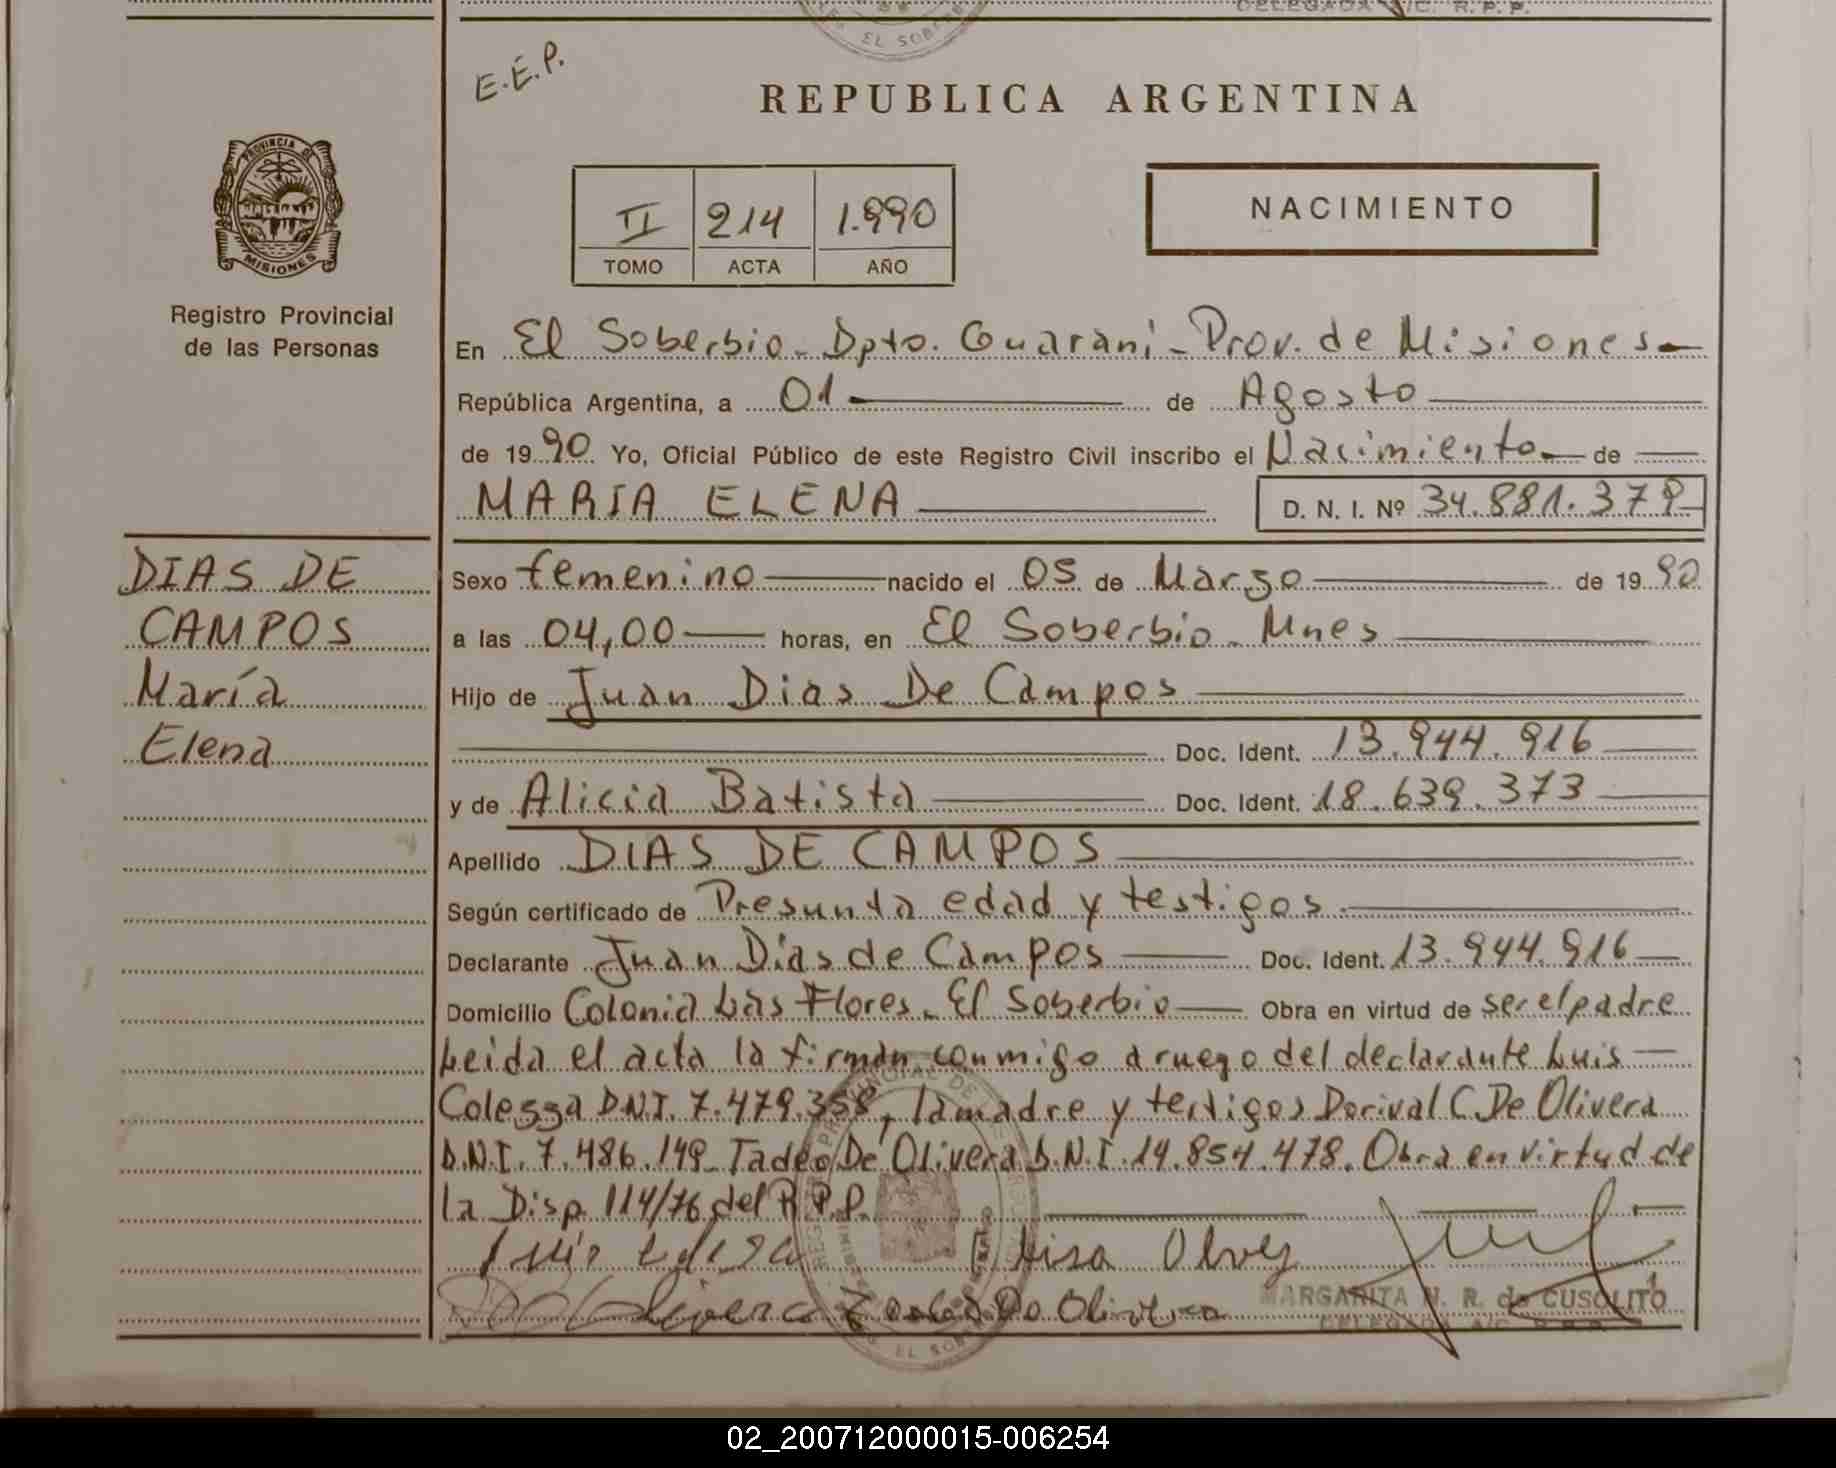 DELEGADA A/C. R.P.P.
EL SOBERB
E.E.P.
REPUBLICA ARGENTINA
PROVINCIA DE
MISIONES
Registro Provincial
de las Personas
II 214 1.990
TOMO ACTA AÑO
NACIMIENTO
En El Soberbio - Dpto. Guaraní - Prov. de Misiones
República Argentina, a 01 de Agosto
de 1990 Yo, Oficial Público de este Registro Civil inscribo el Nacimiento de
MARIA ELENA D. N. I. Nº 34.881.379
DIAS DE
CAMPOS
María
Elena
Sexo femenino nacido el 05 de Marzo de 1990
a las 04,00 horas, en El Soberbio - Mnes
Hijo de Juan Dias De Campos
Doc. Ident. 13.944.916
y de Alicia Batista Doc. Ident. 18.639.373
Apellido DIAS DE CAMPOS
Según certificado de Presunta edad y testigos
Declarante Juan Dias de Campos Doc. Ident. 13.944.916
Domicilio Colonia Las Flores - El Soberbio Obra en virtud de ser el padre
Leida el acta la firman conmigo a ruego del declarante Luis
Colezza D.N.I. 7.479.358, la madre y testigos Dorival C. De Olivera
D.N.I. 7.486.149 - Tadeo De Olivera D.N.I. 14.854.478. Obra en virtud de
la Disp. 114/76 del R.P.P.
MARGARITA N. R. de CUSOLITO
DELEGADA A/C R.P.P.
02_200712000015-006254